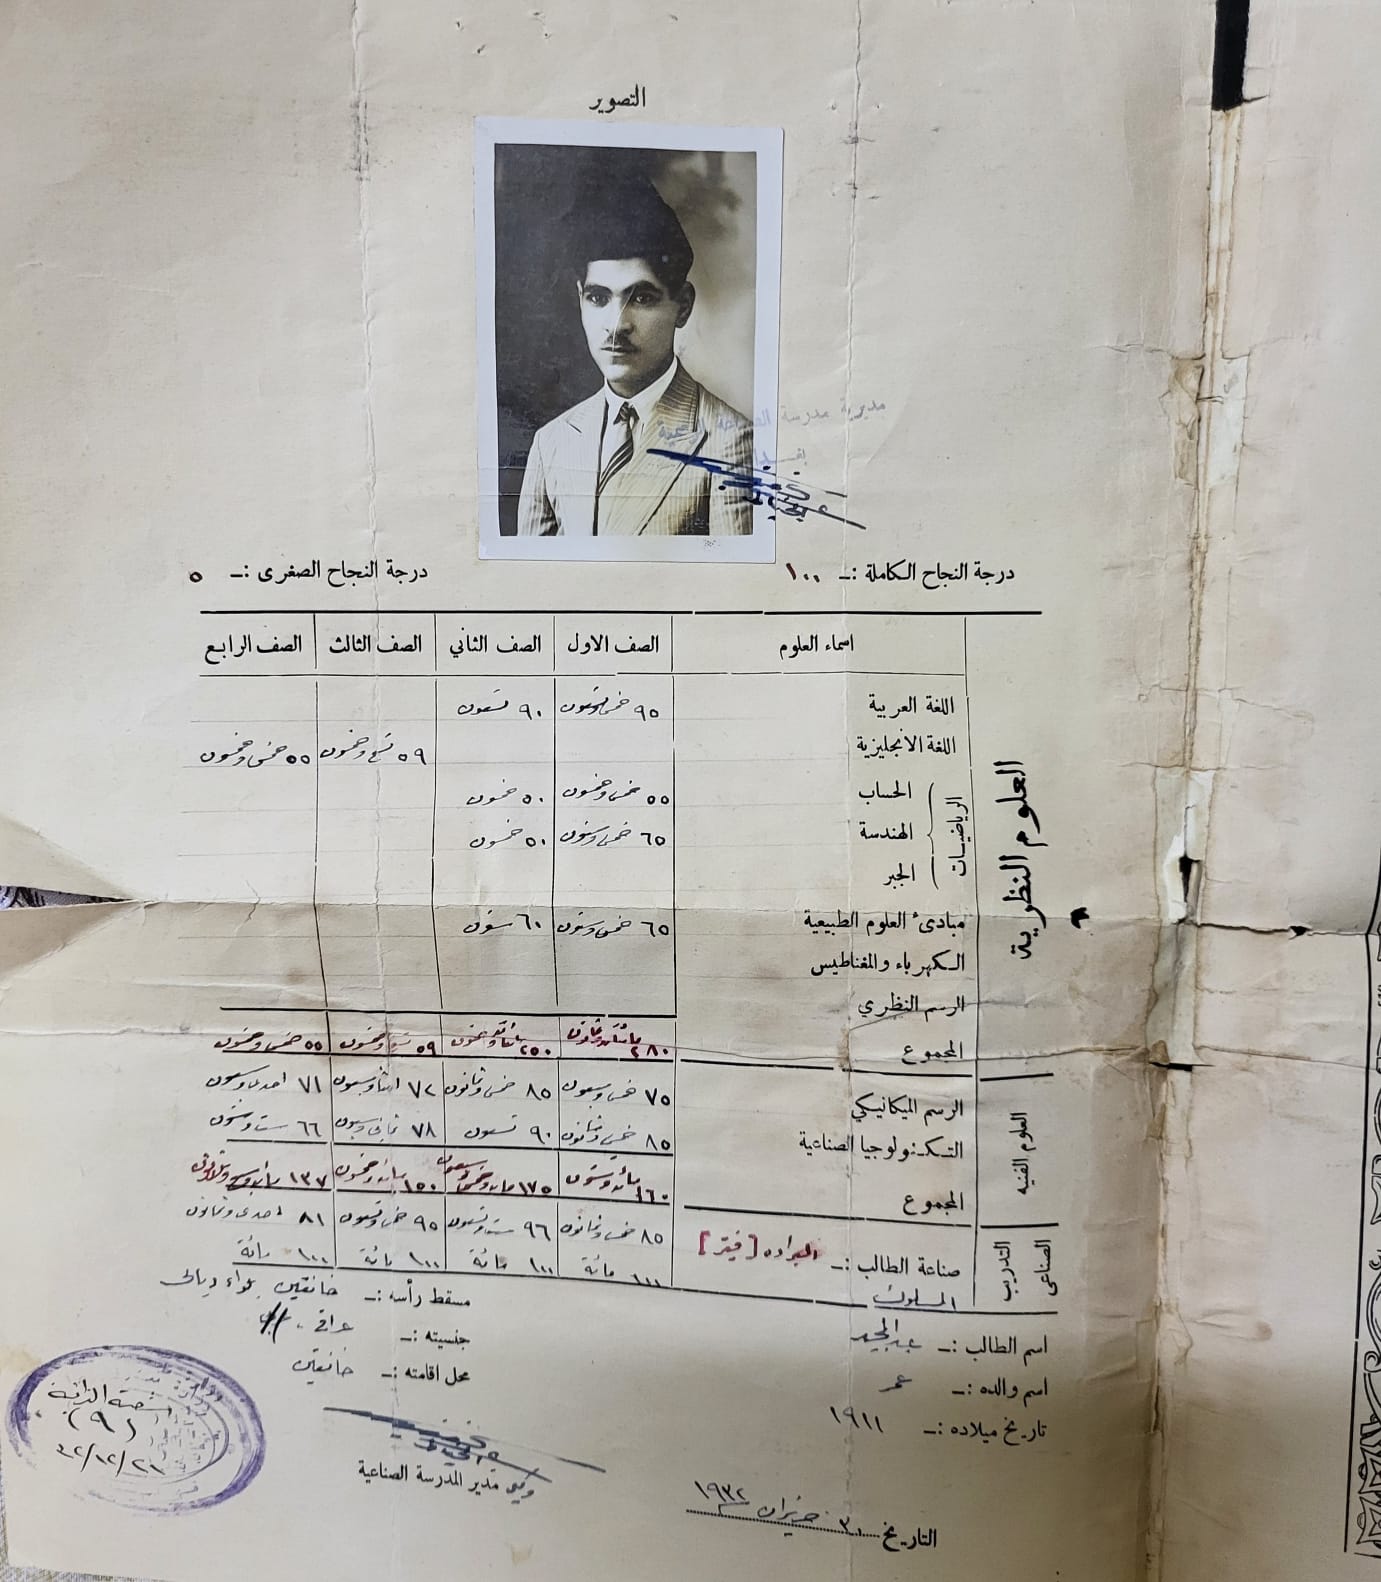 التصوير
مديرية مدرسة الصناعة الرسمية
درجة النجاح الكاملة :ــ ١٠٠
درجة النجاح الصغرى :ــ ٥٠
اسماء العلوم الصف الاول الصف الثاني الصف الثالث الصف الرابع
العلوم النظرية
اللغة العربية ٩٥ خمس وتسعون ٩٠ تسعون
اللغة الانجليزية ٥٩ تسع وخمسون ٥٥ خمس وخمسون
الرياضيات
الحساب ٥٥ خمس وخمسون ٥٠ خمسون
الهندسة ٦٥ خمس وستون ٥٠ خمسون
الجبر
مبادئ العلوم الطبيعية ٦٥ خمس وستون ٦٠ ستون
الكهرباء والمغناطيس
الرسم النظري
المجموع ٢٨٠ مائتان وثمانون ٢٥٠ مائتان وخمسون ٥٩ تسع وخمسون ٥٥ خمس وخمسون
العلوم الفنيه
الرسم الميكانيكي ٧٥ خمس وسبعون ٨٥ خمس وثمانون ٧٢ اثنا وسبعون ٧١ احدى وسبعون
التكنولوجيا الصناعية ٨٥ خمس وثمانون ٩٠ تسعون ٧٨ ثماني وسبعون ٦٦ ست وستون
المجموع ١٦٠ مائة وستون ١٧٥ مائة وخمس وسبعون ١٥٠ مائة وخمسون ١٣٧ مائة وسبع وثلاثون
التدريب الصناعى
صناعة الطالب :ــ البراده [فيتر] ٨٥ خمس وثمانون ٩٦ ست وتسعون ٩٥ خمس وتسعون ٨١ احدى وثمانون
السلوك ١٠٠ مائة ١٠٠ مائة ١٠٠ مائة ١٠٠ مائة
اسم الطالب :ــ عبدالمجيد
اسم والده :ــ عمر
تاريخ ميلاده :ــ ١٩١١
مسقط رأسه :ــ خانقين بلواء ديالى
جنسيته :ــ عراقي
محل اقامته :ــ خانقين
مدير المدرسة الصناعية
التاريخ ٣٠ حزيران ١٩٣٢